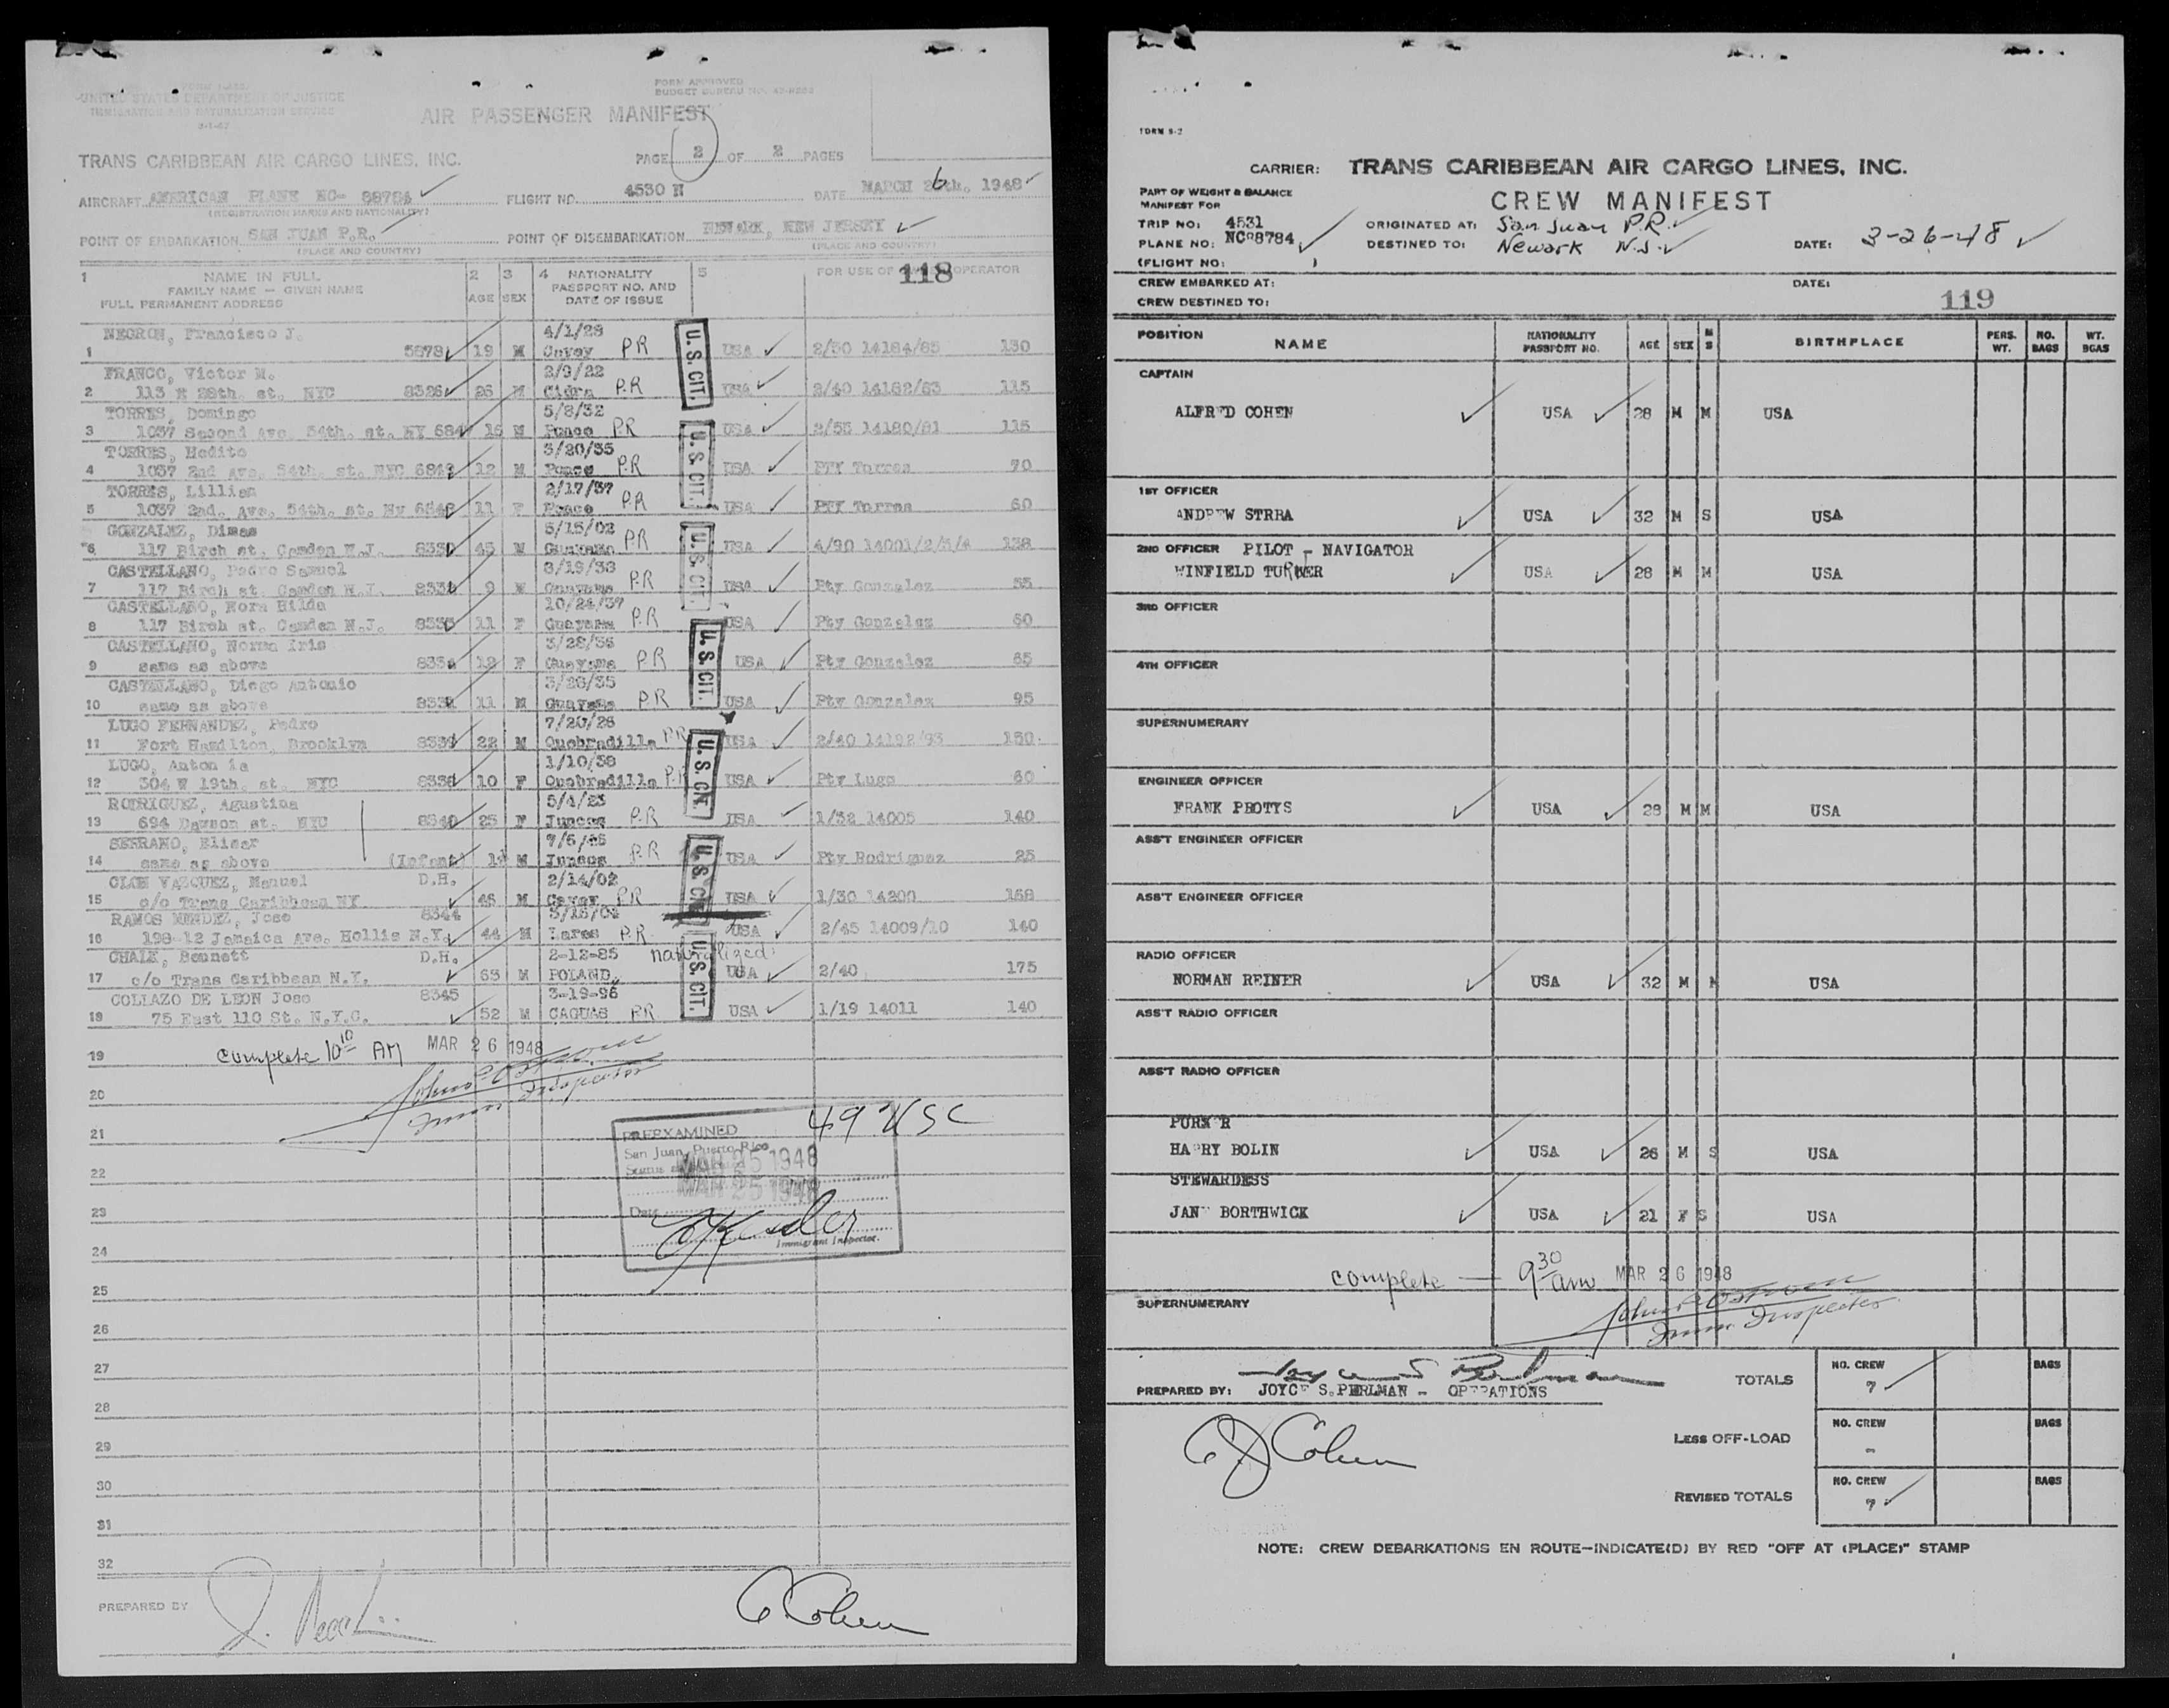 FORM APPROVED
UNITED STATES DEPARTMENT OF JUSTICE
IMMIGRATION AND NATURALIZATION SERVICE
AIR PASSENGER MANIFEST
TRANS CARIBBEAN AIR CARGO LINES, INC.
PAGE 2 OF 2 PAGES
AIRCRAFT AMERICAN PLANE NC- 88784 FLIGHT NO. 4530 N DATE MARCH 26th. 1948
(REGISTRATION MARKS AND NATIONALITY)
POINT OF EMBARKATION SAN JUAN P.R. POINT OF DISEMBARKATION NEWARK, NEW JERSEY
(PLACE AND COUNTRY) (PLACE AND COUNTRY)
1 NAME IN FULL 2 3 4 NATIONALITY 5 FOR USE OF OPERATOR
118
FAMILY NAME — GIVEN NAME PASSPORT NO. AND
FULL PERMANENT ADDRESS AGE SEX DATE OF ISSUE
NEGRON, Francisco J. 4/1/28
1 19 M Cayey P.R USA 2/50 14184/85 130
FRANCO, Victor M. 2/9/22
2 113 E 28th. st. NYC 8326 26 M Cidra P.R USA 2/40 14182/83 115
TORRES, Domingo 5/8/32
3 1037 Second Ave. 54th. st. NY 16 M Ponce PR USA 2/55 14180/81 115
TORRES, Hedito 3/20/35
4 1037 2nd Ave. 54th. st. NYC 12 M Ponce P.R USA PTY Torres 70
TORRES, Lillian 2/17/37
5 1037 2nd. Ave. 54th. st. Ny 11 F Ponce P.R USA PTY Torres 60
GONZALEZ, Dimas 5/15/02
6 117 Birch st. Camden N.J. 45 M Guayama P.R USA 138
CASTELLANO, Pedro Samuel
7 117 Birch st. Camden N.J. 9 M Guayama P.R USA Pty Gonzalez 55
CASTELLANO, Nora Hilda 10/24/37
8 117 Birch st. Camden N.J. 11 F Guayama P.R USA Pty Gonzalez 60
CASTELLANO, Norma Iris 3/28/36
9 same as above 12 F Guayama P.R USA Pty Gonzalez 65
CASTELLANO, Diego Antonio
10 same as above 11 M Guayama P.R USA Pty Gonzalez 95
LUGO FERNANDEZ, Pedro 7/20/26
11 Fort Hamilton, Brooklyn 22 M Quebradilla PR USA 2/40 14192/93 150
LUGO, Anton ia 1/10/38
12 304 W 19th. st. NYC 10 F Quebradilla P.R USA Pty Lugo 60
RODRIGUEZ, Agustina 5/4/23
13 694 Dawson st. NYC 8340 25 F Juncos P.R USA 1/32 14005 140
SERRANO, Eliser
14 same as above (Infant) M Juncos P.R USA Pty Rodriguez 25
CLOH VAZQUEZ, Manuel D.H. 2/14/02
15 c/o Trans Caribbean NY 46 M Cayey PR USA 1/30 14200 168
RAMOS MENDEZ, Jose 8344
16 198-12 Jamaica Ave. Hollis N.Y. 44 M Lares P.R USA 2/45 14009/10 140
CHAIK, Bennett D.H. 2-12-85 naturalized
17 c/o Trans Caribbean N.Y. 63 M POLAND USA 2/40 175
COLLAZO DE LEON Jose 8345 3-19-96
18 75 East 110 St. N.Y.C. 52 M CAGUAS PR USA 1/19 14011 140
U.S. CIT.
U.S. CIT.
U.S. CIT.
U.S. CIT.
U.S. CIT.
U.S. CIT.
U.S. CIT.
19 complete 10 10 AM MAR 26 1948
Imm Inspector
20
21 49 USC
PREEXAMINED
San Juan, Puerto Rico
22 MAR 25 1948
MAR 25 1948
23 Date
Immigrant Inspector.
24
25
26
27
28
29
30
31
32
PREPARED BY
Cohen
FORM S-2
CARRIER: TRANS CARIBBEAN AIR CARGO LINES, INC.
PART OF WEIGHT & BALANCE
MANIFEST FOR CREW MANIFEST
TRIP NO: 4531 ORIGINATED AT: San Juan P.R.
PLANE NO: NC88784 DESTINED TO: Newark N.J. DATE: 3-26-48
(FLIGHT NO: )
CREW EMBARKED AT: DATE:
CREW DESTINED TO: 119
POSITION NAME NATIONALITY PASSPORT NO. AGE SEX M S BIRTHPLACE PERS. WT. NO. BAGS WT. BGAS
CAPTAIN
ALFRED COHEN USA 28 M M USA
1ST OFFICER
ANDREW STRBA USA 32 M S USA
2ND OFFICER PILOT - NAVIGATOR
WINFIELD TURNER USA 28 M M USA
3RD OFFICER
4TH OFFICER
SUPERNUMERARY
ENGINEER OFFICER
FRANK PROTYS USA 28 M M USA
ASS'T ENGINEER OFFICER
ASS'T ENGINEER OFFICER
RADIO OFFICER
NORMAN REINER USA 32 M M USA
ASS'T RADIO OFFICER
ASS'T RADIO OFFICER
PURSER
HARRY BOLIN USA 26 M S USA
STEWARDESS
JANE BORTHWICK USA 21 F S USA
complete — 9 30 am MAR 26 1948
SUPERNUMERARY
Imm. Inspector
PREPARED BY: JOYCE S. PERLMAN - OPERATIONS
TOTALS NO. CREW 7 BAGS
Cohen
LESS OFF-LOAD NO. CREW - BAGS
REVISED TOTALS NO. CREW 7 BAGS
NOTE: CREW DEBARKATIONS EN ROUTE—INDICATE(D) BY RED "OFF AT (PLACE)" STAMP